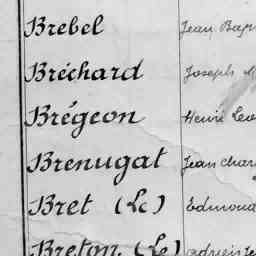 Brebel Jean Bap
Bréchard Joseph
Brégeon Henri Leo
Brenugat Jean Char
Bret (Le) Edmond
Breton (Le) Adrien